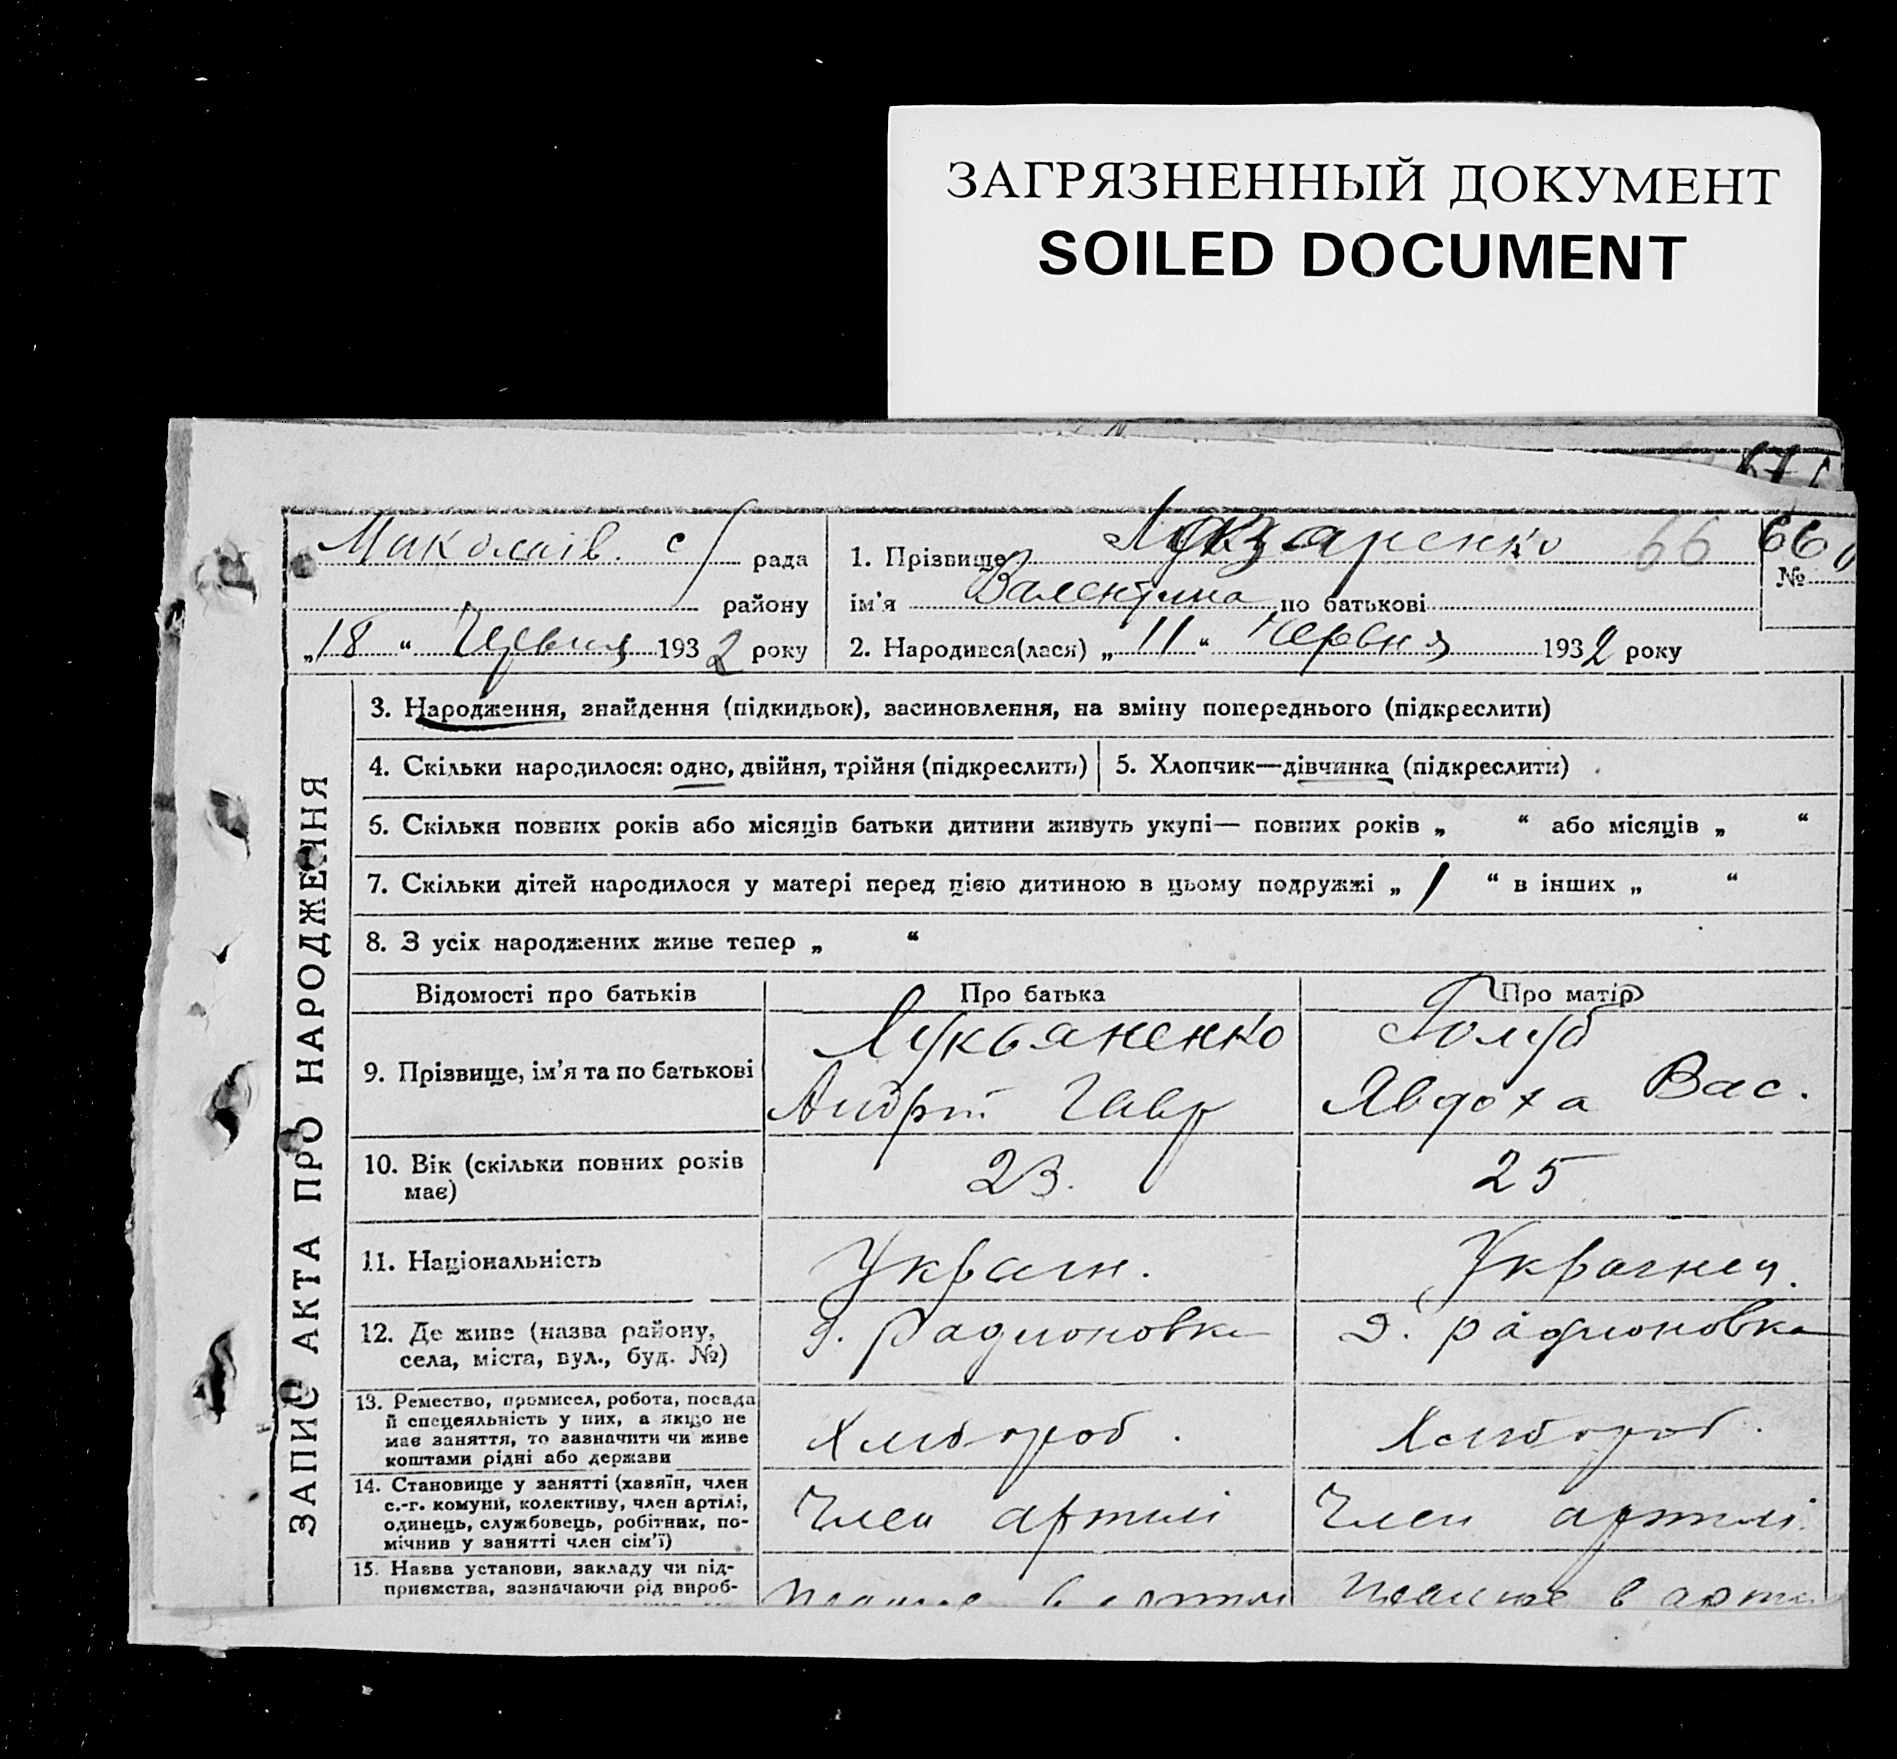 ЗАГРЯЗНЕННЫЙ ДОКУМЕНТ
SOILED DOCUMENT
Миколаїв. с/ рада
району
„18“ Червня 1932 року
1. Прізвище 66
ім'я Валентина по батькові
2. Народився(лася) „11“ червня 1932 року
66
№
ЗАПИС АКТА ПРО НАРОДЖЕННЯ
3. Народження, знайдення (підкидьок), васиновлення, на зміну попереднього (підкреслити)
4. Скільки народилося: одно, двійня, трійня (підкреслить)
5. Хлопчик—дівчинка (підкреслити)
6. Скільки повних років або місяців батьки дитини живуть укупі— повних років „ “ або місяців „ “
7. Скільки дітей народилося у матері перед цією дитиною в цьому подружжі „ 1 “ в інших „ “
8. З усіх народжених живе тепер „ “
Відомості про батьків Про батька Про матір
9. Прізвище, ім'я та по батькові
Лукьяненко
Андрій Гавр
Голуб
Явдоха Вас.
10. Вік (скільки повних років
має)
23.
25
11. Національність
Украін.
12. Де живе (назва району,
села, міста, вул., буд. №)
Радионовка
радионовка
13. Ремество, промисел, робота, посада
й спецеяльність у них, а якщо не
має заняття, то зазначити чи живе
коштами рідні або держави
Хлибороб.
Хлибороб.
14. Становище у занятті (хазяїн, член
с.-г. комуни, колективу, член артілі,
одинець, службовець, робітник, по-
мічнив у занятті член сім'ї)
Член артилі
Член артилі.
15. Назва установи, закладу чи під-
приємства, зазначаючи рід вироб-